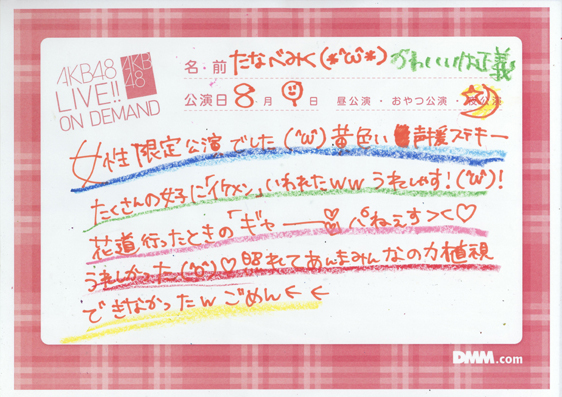 AKB48
LIVE!!
ON DEMAND
AKB
48
名・前 たなべみく(*^ω^*) かわいいは正義
公演日 8 月 9 日 昼公演・おやつ公演・夜公演
女性限定公演でした(^ω^)黄色い声援ステキー
たくさんの女子に「イケメン」いわれたww うれしやす!(^ω^)!
花道行ったときの「ギャー ぱねぇす><♡
うれしかった(^o^)♡照れてあんまみんなの方直視
できなかったw ごめん← ←
DMM.com